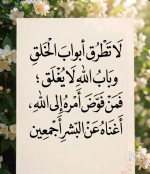 لَا تَطْرُق أبوابَ الْخَلقِ
وَبَابُ اللهِ لَا يُغْلَق ؛
فَمَنْ فَوَّضَ أَمْرَهُ إِلى اللهِ،
أَغنَاهُ عَنْ البَشَرِ أَجْمعِين